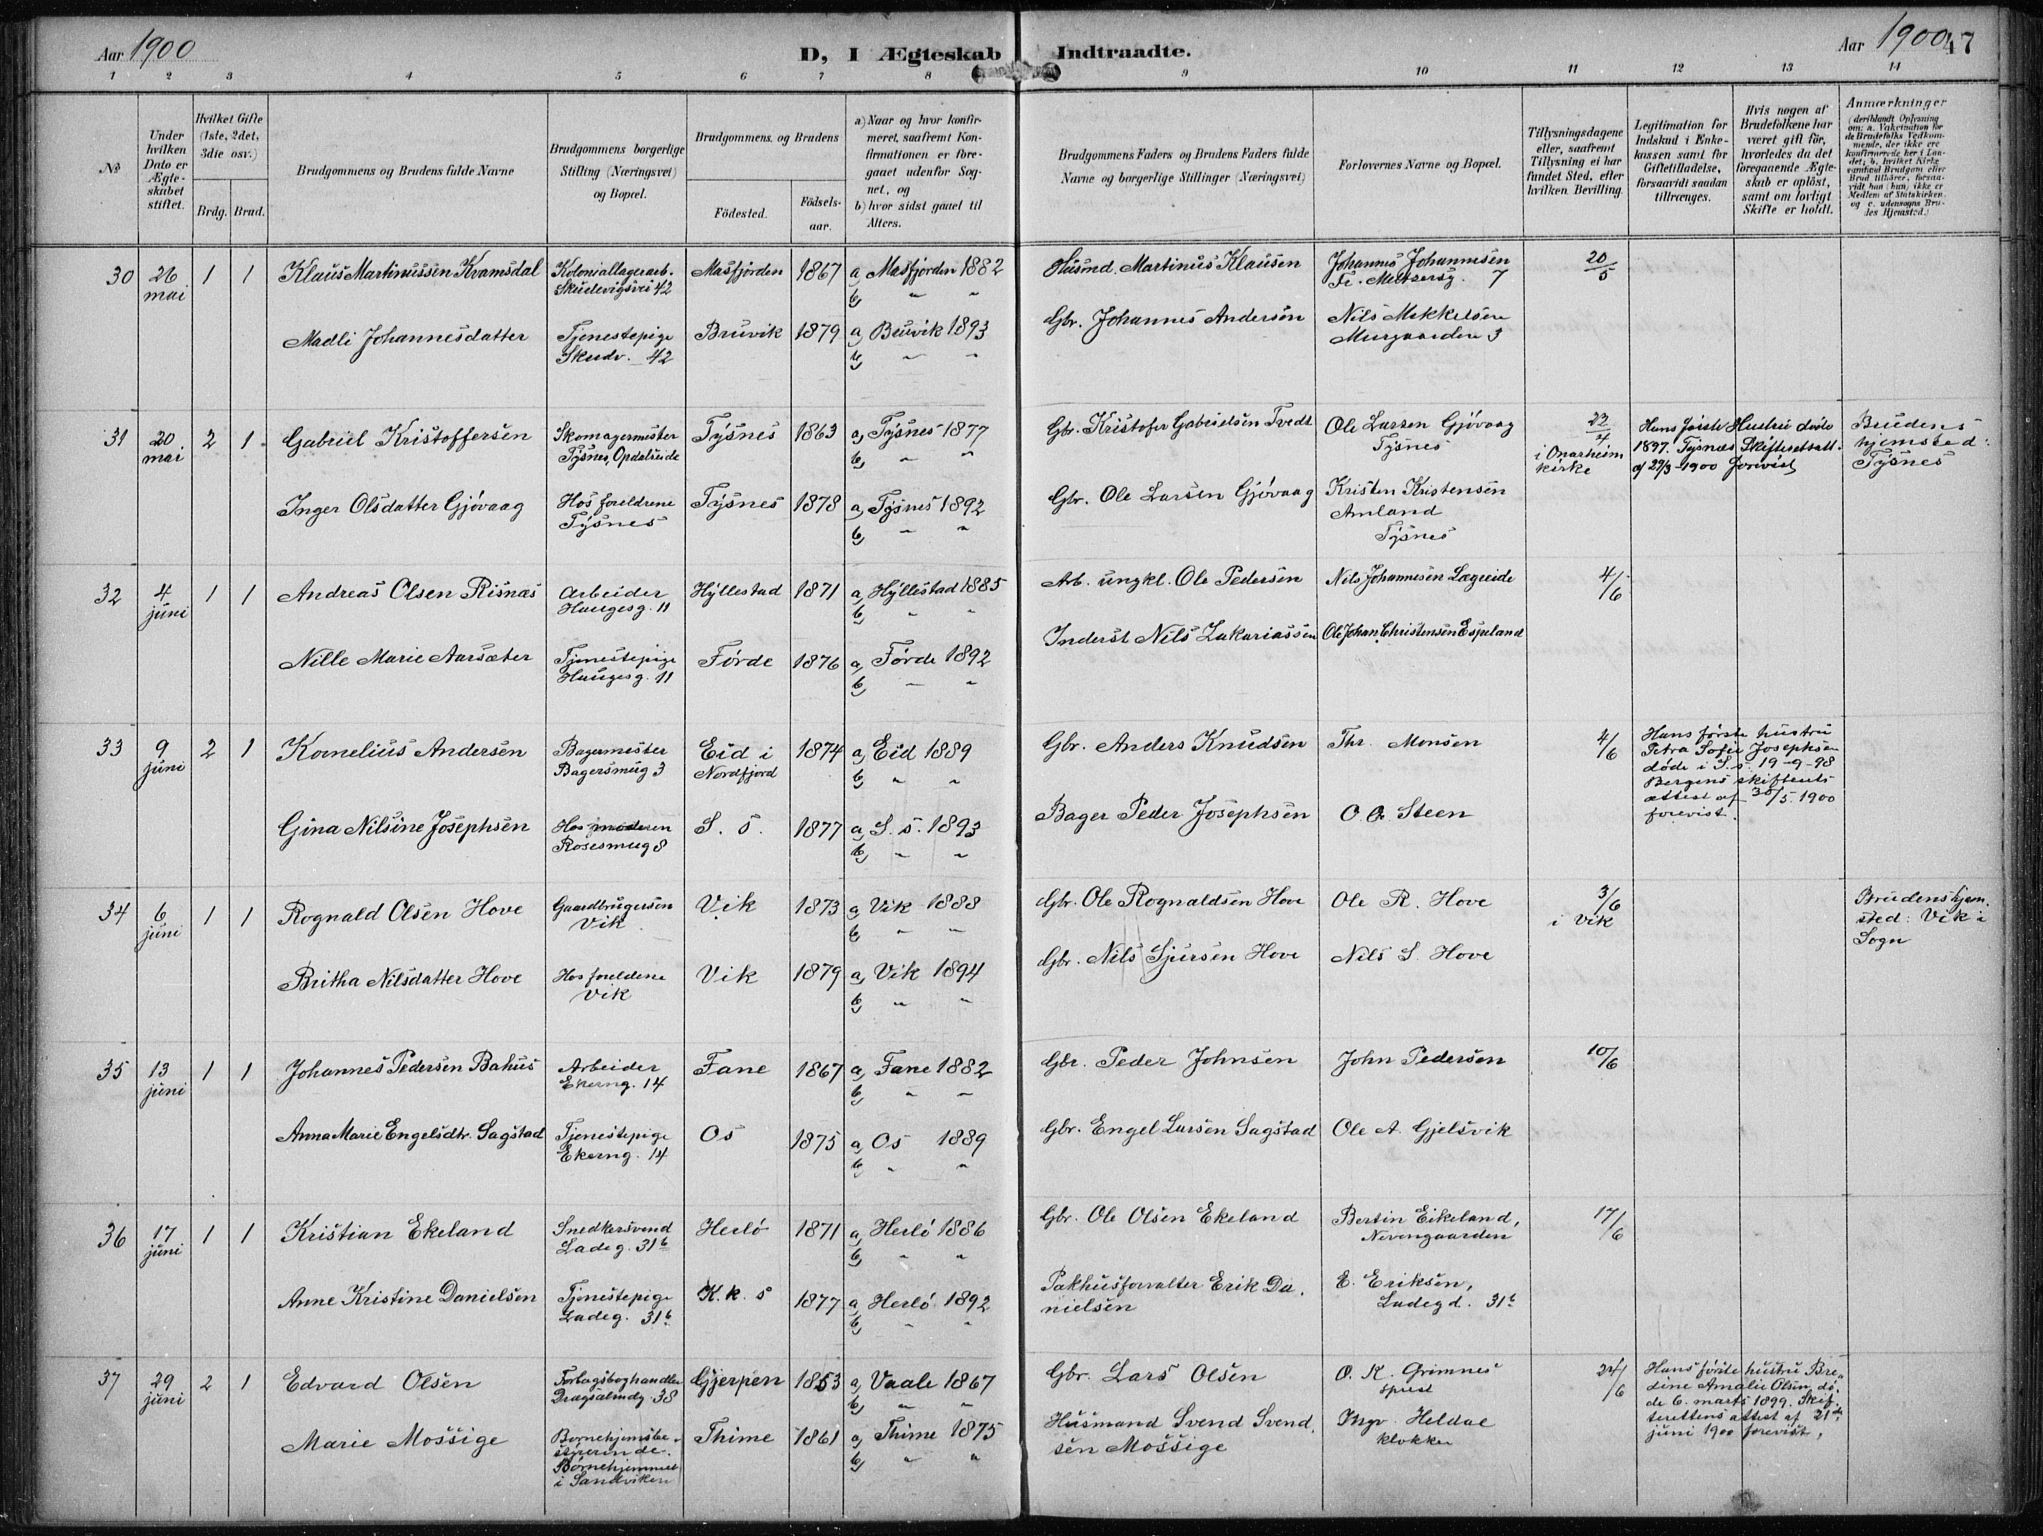 Aar 1900
D, I Ægteskab Indtraadte.
Aar 1900
47
1 2 3 4 5 6 7 8 9 10 11 12 13 14
No.
Under hvilken Dato er Ægteskabet stiftet.
Hvilket Gifte (1ste, 2det, 3die osv.)
Brdg. Brud.
Brudgommens og Brudens fulde Navne
Brudgommens borgerlige Stilling (Næringsvei) og Bopæl.
Brudgommens og Brudens
Födested.
Födselsaar.
a) Naar og hvor konfirmeret, saafremt Konfirmationen er foregaaet udenfor Sognet, og
b) hvor sidst gaaet til Alters.
Brudgommens Faders og Brudens Faders fulde Navne og borgerlige Stillinger (Næringsvei)
Forlovernes Navne og Bopæl.
Tillysningsdagene eller, saafremt Tillysning ei har fundet Sted, efter hvilken Bevilling.
Legitimation for Indskud i Enkekassen samt for Giftetilladelse, forsaavidt saadan tiltrænges.
Hvis nogen af Brudefolkene har været gift för, hvorledes da det foregaaende Ægteskab er oplöst, samt om lovligt Skifte er holdt.
Anmærkninger
(deriblandt Oplysning om: a. Vakcination for de Brudefolks Vedkommende, der ikke ere konfirmerede her i Landet; b. hvilket Kirkesamfund Brudgom eller Brud tilhörer, forsaavidt han (hun) ikke er Medlem af Statskirken, og c. udensogns Brudes Hjemsted.)
30 26 mai 1 1 Klaus Martinussen Kvamsdal Koloniallagerarb. Skudevigsvei 42 Masfjorden 1867 a, Masfjorden 1882 b, " " Husmd. Martinus Klausen Johannes Johannesen Fr. Meltzersg. 7 20/5
Madli Johannesdatter Tjenestepige Skudv. 42 Bruvik 1879 a, Bruvik 1893 b, " " Gbr. Johannes Andersen Nils Mikkelsen Murgaarden 3
31 20 mai 2 1 Gabriel Kristoffersen Skomagermester Tysnes, Opdalseide Tysnes 1863 a, Tysnes 1877 b, " " Gbr. Kristofer Gabrielsen Tvedt Ole Larsen Gjövaag Tysnes 22/4 i Onarheim kirke Hans förste Hustru döde 1897. Tysnæs Skifteretsatt. af 29/3-1900 forevist Brudens hjemsted: Tysnes
Inger Olsdatter Gjövaag Hos foreldrene Tysnes Tysnes 1878 a, Tysnes 1892 b, " " Gbr. Ole Larsen Gjövaag Kristen Kristensen Amland Tysnes
32 4 juni 1 1 Andreas Olsen Risnæs Arbeider Haugesg. 11 Hyllestad 1871 a, Hyllestad 1885 b, " " Arb. ungkl. Ole Pedersen Nils Johannesen Lægreide 4/6
Nille Marie Aarsæter Tjenestepige Haugesg. 11 Förde 1876 a, Förde 1892 b, " " Inderst Nils Zakariassen Ole Johan Christensen Espeland
33 9 juni 2 1 Kornelius Andersen Bagermester Bagersmug 3 Eid i Nordfjord 1874 a, Eid 1889 b, " " Gbr. Anders Knudsen Thr. Monsen 4/6 Hans förste hustru Petra Sofie Josephsen döde i S.s. 19-9-98 Bergens skifterets attest af 30/5 1900 forevist.
Gina Nilsine Josephsen Hos moderen Rosesmug 8 S. s. 1877 a, S. s. 1893 b, " " Bager Peder Josephsen O. Steen
34 6 juni 1 1 Rognald Olsen Hove Gaardbrugersön Vik Vik 1873 a, Vik 1888 b, " " Gbr. Ole Rognaldsen Hove Ole R. Hove 3/6 i Vik Brudens hjemsted: Vik i Sogn
Britha Nilsdatter Hove Hos foreldene Vik Vik 1879 a, Vik 1894 b, " " Gbr. Nils Sjursen Hove Nils S. Hove
35 13 juni 1 1 Johannes Pedersen Bahus Arbeider Ekerng. 14 Fane 1867 a, Fane 1882 b, " " Gbr. Peder Johnsen John Pedersen 10/6
Anna Marie Engelsdtr. Sagstad Tjenestepige Ekerng. 14 Os 1875 a, Os 1889 b, " " Gbr. Engel Larsen Sagstad Ole A. Gjelsvik
36 17 juni 1 1 Kristian Ekeland Snedkersvend Ladeg. 31b Herlö 1871 a, Herlö 1886 b, " " Gbr. Ole Olsen Ekeland Bertin Eikeland, Nevengaarden 17/6
Anne Kristine Danielsen Tjenestepige Ladeg. 31b K. k. s 1877 a, Herlö 1892 b, " " Pakhusforvalter Erik Danielsen E. Eriksen, Ladegd. 31b
37 29 juni 2 1 Edvard Olsen Forlagsboghandler Dragsalmdg 38 Gjerpen 1853 a, Vaale 1867 b, " " Gbr. Lars Olsen O. K. Grimnes sprest 24/6 Hans förste hustru Bredine Amalie Olsen döde 6. marts 1899. Skifterettens attest af 21de juni 1900 forevist.
Marie Mossige Börnehjemsbestyrerinde. Börnehjemmet i Sandviken Thime 1861 a, Thime 1875 b, " " Husmand Svend Svendsen Mossige Ingv. Heldal klokker